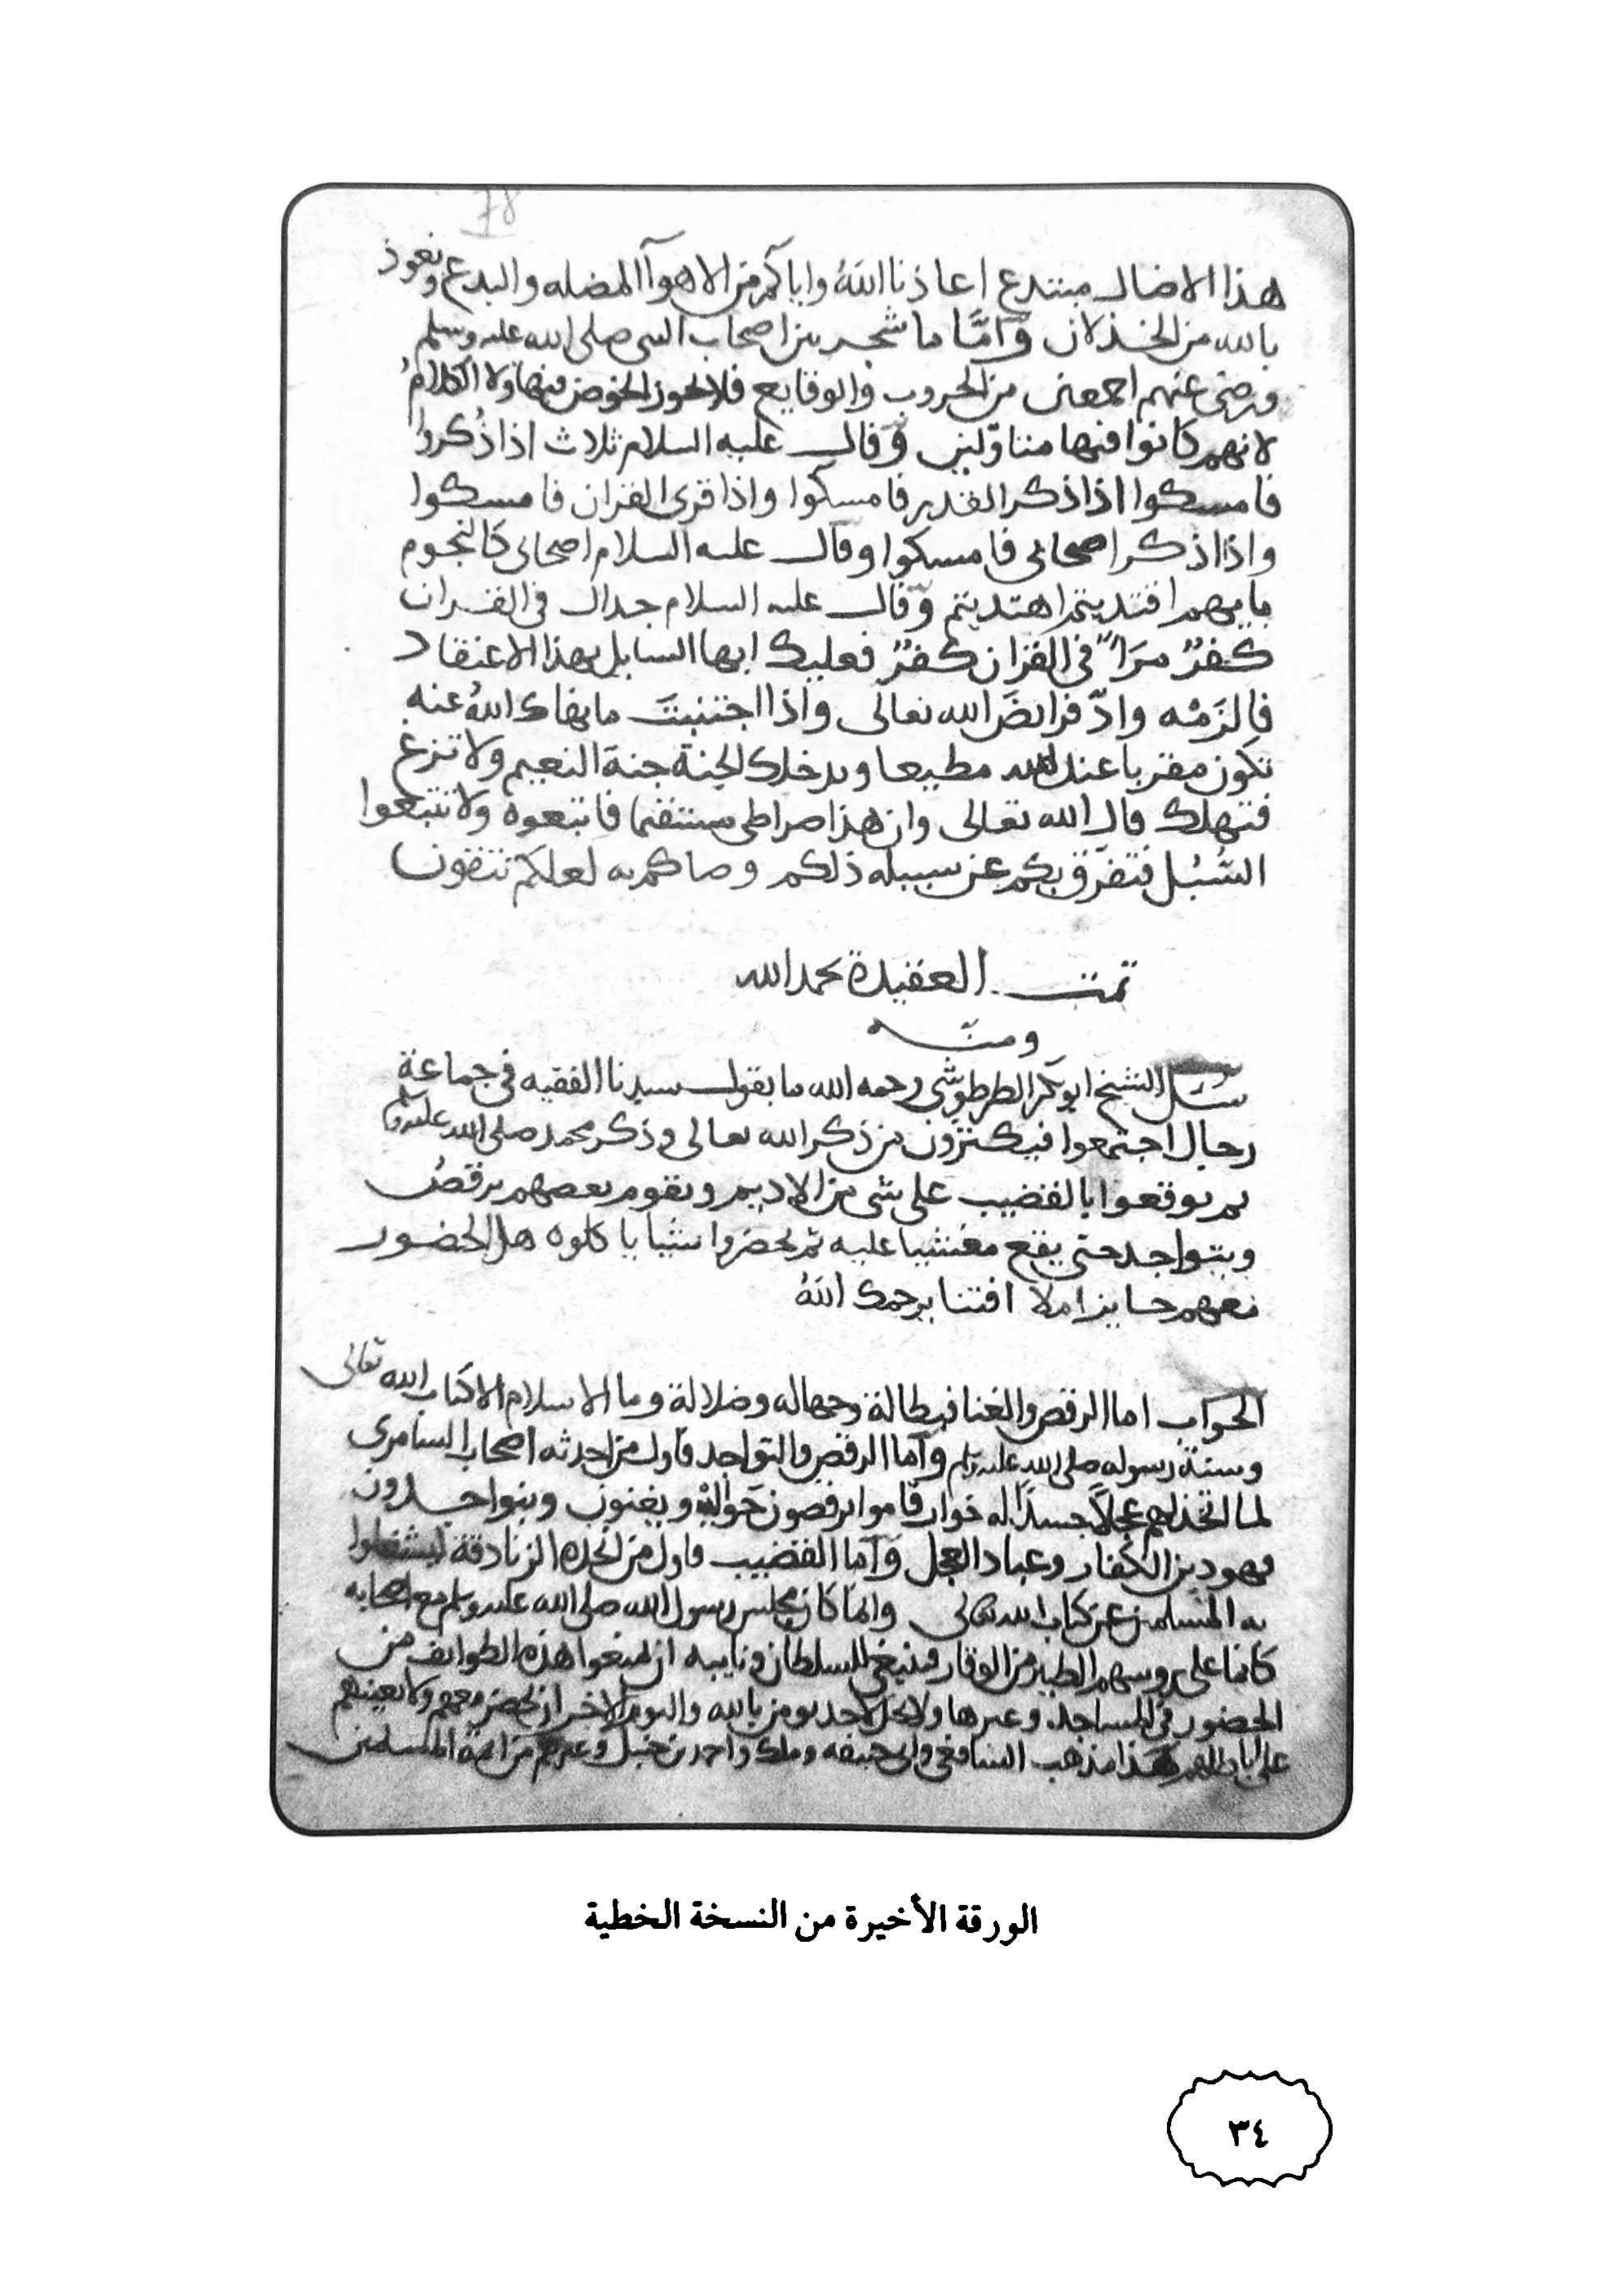 78
هذا الاضال مبتدع اعاذنا اللهُ واياكم من الاهوآ المضله والبدع ونعوذ
بالله من الخذلان وَامَّا ما شجر بين اصحاب النبى صلى الله عليه وسلم
ورضى عنهم اجمعين من الحروب والوقايع فلا يجوز الخوض فيها ولا الكلامُ
لانهم كانوا فيها متاوّلين وَقال عليه السلام ثلاث اذا ذُكروا
فامسكوا اذا ذكر القدر فامسكوا واذا قرى القران فامسكوا
واذا ذكر اصحابى فامسكوا وقال عليه السلام اصحابى كالنجوم
بايهم اقتديتم اهتديتم وَقال عليه السلام جدال فى القران
كفرٌ مرَآ فى القران كفرٌ فعليك ايها السايل بهذا الاعتقاد
فالزَمْه وادّ فرايضَ الله تعالى واذا اجتنبتَ ما نهاك اللهُ عنه
تكون مقربا عند الله مطيعا ويدخلك الجنة جنة النعيم ولا تزغ
فتهلك قال الله تعالى وان هذا صراطى مستقيما فاتبعوه ولا تتبعوا
السُّبُل فتفرّق بكم عن سبيله ذلكم وصاكم به لعلكم تتقون
تمت العقيدة بحمد الله
ومنه
سُئل الشيخ ابو بكر الطرطوشّى رحمه الله ما يقول سيدنا الفقيه فى جماعة
رجال اجتمعوا فيكثرون من ذكر الله تعالى وذكر محمد صلى الله عليه وسلم
ثم يوقعوا بالقضيب على شى من الاديم ويقوم بعضهم يرقصُ
ويتواجد حتى يقع مغشيا عليه ثم يحضروا شيا ياكلوه هل الحضور
معهم جايز ام لا افتنا يرحمك اللهُ
الجواب اما الرقص والغنا فبطالة وجهاله وضلالة وما الاسلام الا كتاب الله تعالى
وسنة رسوله صلى الله عليه وسلم وَاما الرقص والتواجد فاول من احدثه اصحاب السامرى
لما اتخذ لهم عجلًا جسدًا له خوار قاموا يرقصون حواليه ويغنون ويتواجدون
فهو دين الكفار وعباد العجل وَاما القضيب فاول من اتخذه الزنادقة ليشغلوا
به المسلمين عن كتاب الله تعالى وانما كان مجلس رسول الله صلى الله عليه وسلم مع اصحابه
كانما على روسهم الطير من الوقار فينبغى للسلطان ونايبه ان يمنعوا هذه الطوايف من
الحضور فى المساجد وغيرها ولا يحل لاحد يومن بالله واليوم الاخر ان يحضر معهم ولا يعينهم
على باطلهم هذا مذهب الشافعى وابى حنيفه ومالك واحمد بن حنبل وغيرهم من ايمة المسلمين
الورقة الأخيرة من النسخة الخطية
٣٤